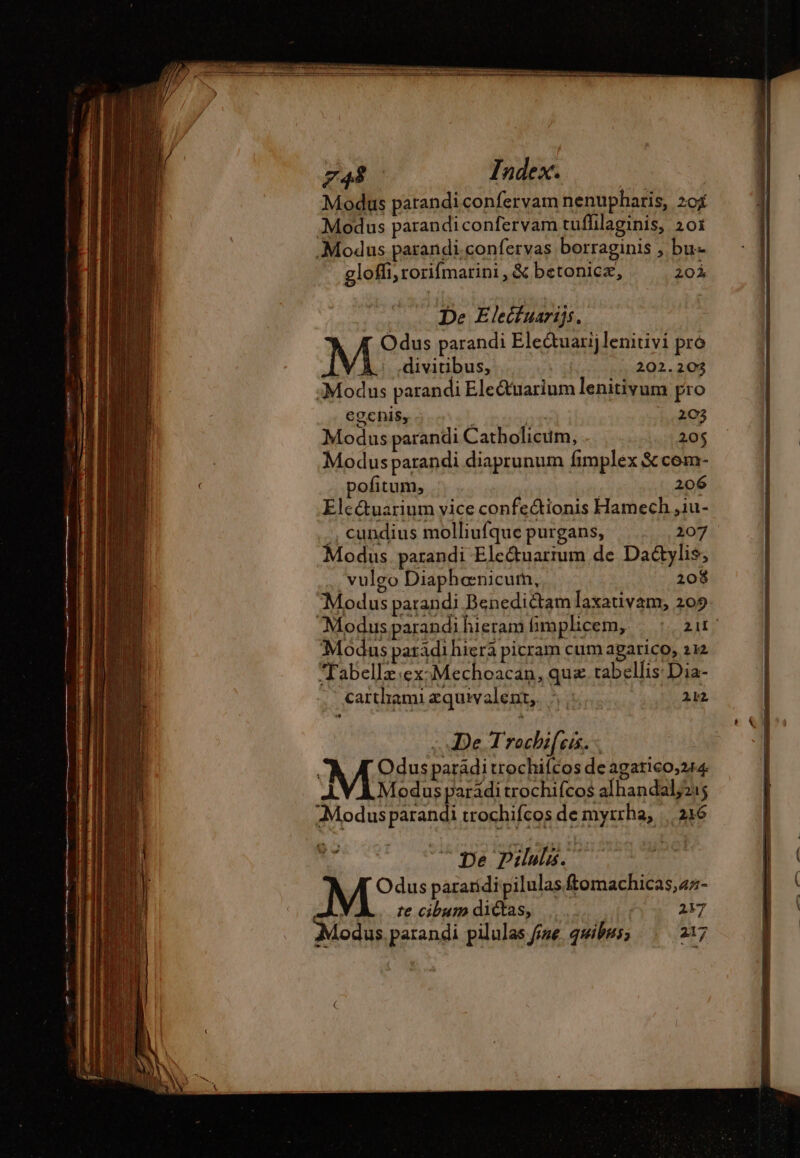 748 Index.
Modus parandi conſervam nenupharis, 201
Modus parandi conſervam tuſſilaginis, 201
Modus parandi conſervas borraginis, bu-
gloſſi, roriſmarini, & betonicæ, 202
De Electuarijs.
MOdus parandi Electuarij lenitivi pro
divitibus, 202.203
Modus parandi Electuarium lenitivum pro
egenis, 203
Modus parandi Catholicum, 205
Modus parandi diaprunum ſimplex & com-
poſitum, 206
Electuarium vice confectionis Hamech, iu-
cundius molliuſque purgans, 207
Modus parandi Electuarium de Dactylis,
vulgo Diaphœnicum, 208
Modus parandi Benedictam laxativam, 209
Modus parandi hieram ſimplicem, 211
Modus parādi hierā picram cum agarico, 212
Tabellæ ex Mechoacan, quæ tabellis Dia-
carthami æquivalent, 212
De Trochiſcis.
MOdus parādi trochiſcos de agarico, 214
Modus parādi trochiſcos alhandal, 215
Modus parandi trochiſcos de myrrha, 216
De Pilulis.
MOdus parandi pilulas ſtomachicas, an-
te cibum dictas, 217
Modus parandi pilulas ſine quibus, 217